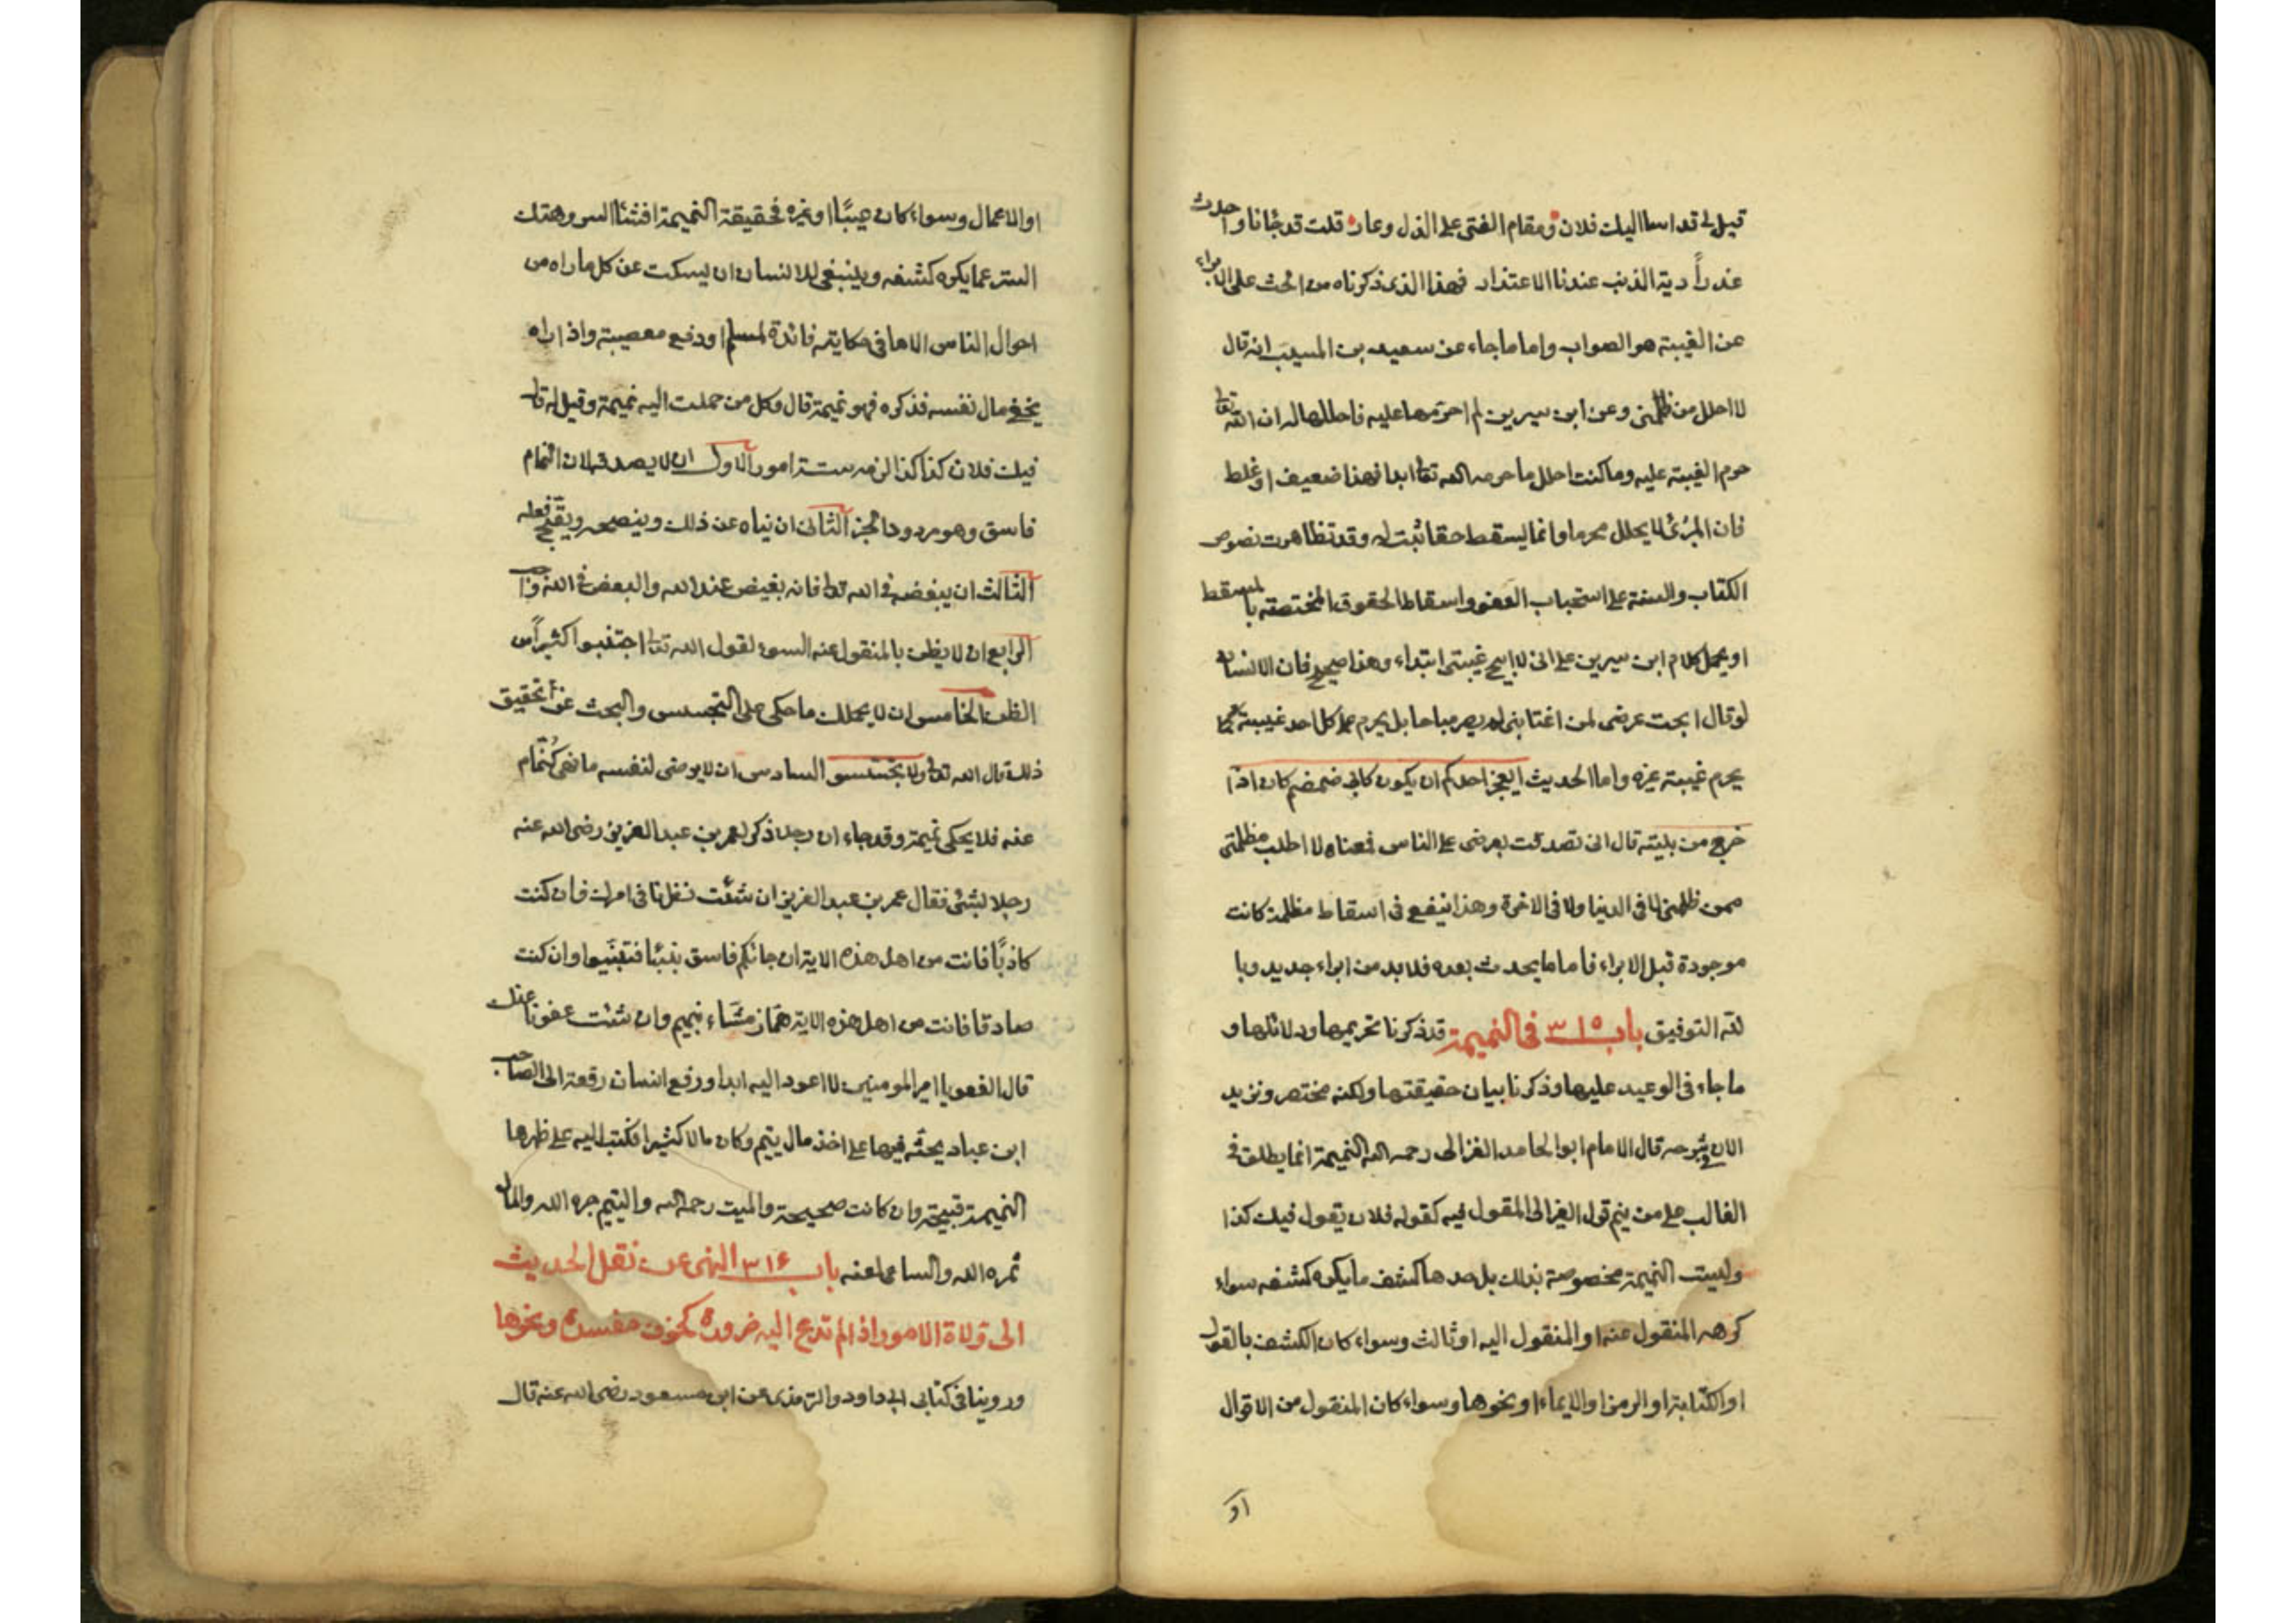 قيل لي قد اسا اليك فلان ومقام الفتى على الذل وعار قلت قد جانا واحدث
عذراً دية الذنب عندنا الاعتذار فهذا الذى ذكرناه من الحث على الابراء
عن الغيبة هو الصواب واما ما جاء عن سعيد بن المسيب انه قال
لا احلل من ظلمنى وعن ابن سيرين لم احرمها عليه فاحللها له ان الله تعالى
حرم الغيبة عليه وما كنت احلل ما حرمه الله تعالى ابدا فهذا ضعيف او غلط
فان المبرئ لا يحلل محرما وانما يسقط حقا ثبت له وقد تظاهرت نصوص
الكتاب والسنة على استحباب العفو واسقاط الحقوق المختصة بالمسقط
او يحمل كلام ابن سيرين على انى لا ابيح غيبتى ابتداء وهذا صحيح فان الانسان
لو قال ابحت عرضى لمن اغتابنى لم يصر مباحا بل يحرم على كل احد غيبته كما
يحرم غيبة غيره واما الحديث ايعجز احدكم ان يكون كابى ضمضم كان اذا
خرج من بيته قال انى تصدقت بعرضى على الناس فمعناه لا اطلب مظلمتى
ممن ظلمنى لا فى الدنيا ولا فى الاخرة وهذا ينفع فى اسقاط مظلمة كانت
موجودة قبل الابراء فاما ما يحدث بعده فلا بد من ابراء جديد وبا
لله التوفيق باب ٣١٥ فى النميمة قد ذكرنا تحريمها ودلائلها و
ما جاء فى الوعيد عليها وذكرنا بيان حقيقتها ولكنه مختصر ونزيد
الان فى شرحه قال الامام ابو الحامد الغزالى رحمه الله النميمة انما يطلق فى
الغالب على من ينم قول الغير الى المقول فيه كقوله فلان يقول فيك كذا
وليست النميمة مخصوصة بذلك بل حدها كشف ما يكره كشفه سواء
كرهه المنقول عنه او المنقول اليه او ثالث وسواء كان الكشف بالقول
او الكتابة او الرمز او الايماء او نحوها وسواء كان المنقول من الاقوال
او
او الاعمال وسواء كان عيبًا او غيره فحقيقة النميمة افشاء السر وهتك
الستر عما يكره كشفه وينبغى للانسان ان يسكت عن كل ما راه من
احوال الناس الا ما فى حكايته فائدة لمسلم او دفع معصية واذا راه
يخفى مال نفسه فذكره فهو نميمة قال وكل من حملت اليه نميمة وقيل له قال
فيك فلان كذا كذا لزمه ستة امور الاول ان لا يصدقه لان النمام
فاسق وهو مردود الخبر الثانى ان نهاه عن ذلك وينصحه ويقبح فعله
الثالث ان يبغضه فى الله تعالى فانه بغيض عند الله والبغض فى الله واجب
الرابع ان لا يظن بالمنقول عنه السوء لقول الله تعالى اجتنبوا كثيراً من
الظن الخامس ان لا يحملك ما حكى على التجسس والبحث عن تحقيق
ذلك قال الله تعالى ولا تجسسوا السادس ان لا يرضى لنفسه ما نهى النمام
عنه فلا يحكى نميمة وقد جاء ان رجلا ذكر لعمر بن عبد العزيز رضى الله عنه
رجلا بشئ فقال عمر بن عبد العزيز ان شئت نظرنا فى امرك فان كنت
كاذبًا فانت من اهل هذه الاية ان جائكم فاسق بنبأ فتبينوا وان كنت
صادقا فانت من اهل هذه الاية هماز مشاء بنميم وان شئت عفونا عنك
قال العفو يا امير المومنين لا اعود اليه ابدا ورفع انسان رقعة الى الصاحب
ابن عباد يحثه فيها على اخذ مال يتيم وكان مالا كثيرا فكتب اليه على ظهرها
النميمة قبيحة وان كانت صحيحة والميت رحمه الله واليتيم جبره الله والمال
ثمره الله والساعى لعنه باب ٣١٦ النهى عن نقل الحديث
الى ولاة الامور اذا لم تدع اليه ضرورة كخوف مفسدة ونحوها
وروينا فى كتابى ابى داود والترمذى عن ابن مسعود رضى الله عنه قال